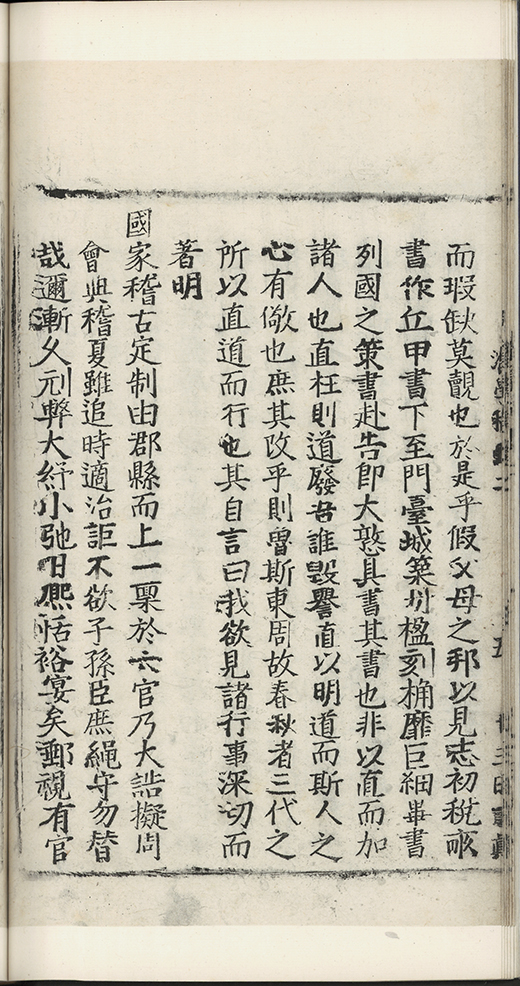 而瑕缺莫覿也於是乎假父母之邦以見志初稅畝
書作丘甲書下至門臺城築圳楹刻桷靡巨細畢書
列國之策書赴告卽大憝具書其書也非以直而加
諸人也直枉則道廢吾誰毀譽直以明道而斯人之
心有儆也庶其改乎則曾斯東周故春秋者三代之
所以直道而行也其自言曰我欲見諸行事深切而
著明
國家稽古定制由郡縣而上一稟於六官乃大誥擬周
會典稽夏雖追時適治詎不欲子孫臣庶繩守勿替
哉邇漸乆刓弊大紓小弛日熈恬裕宴矣鄙視有官